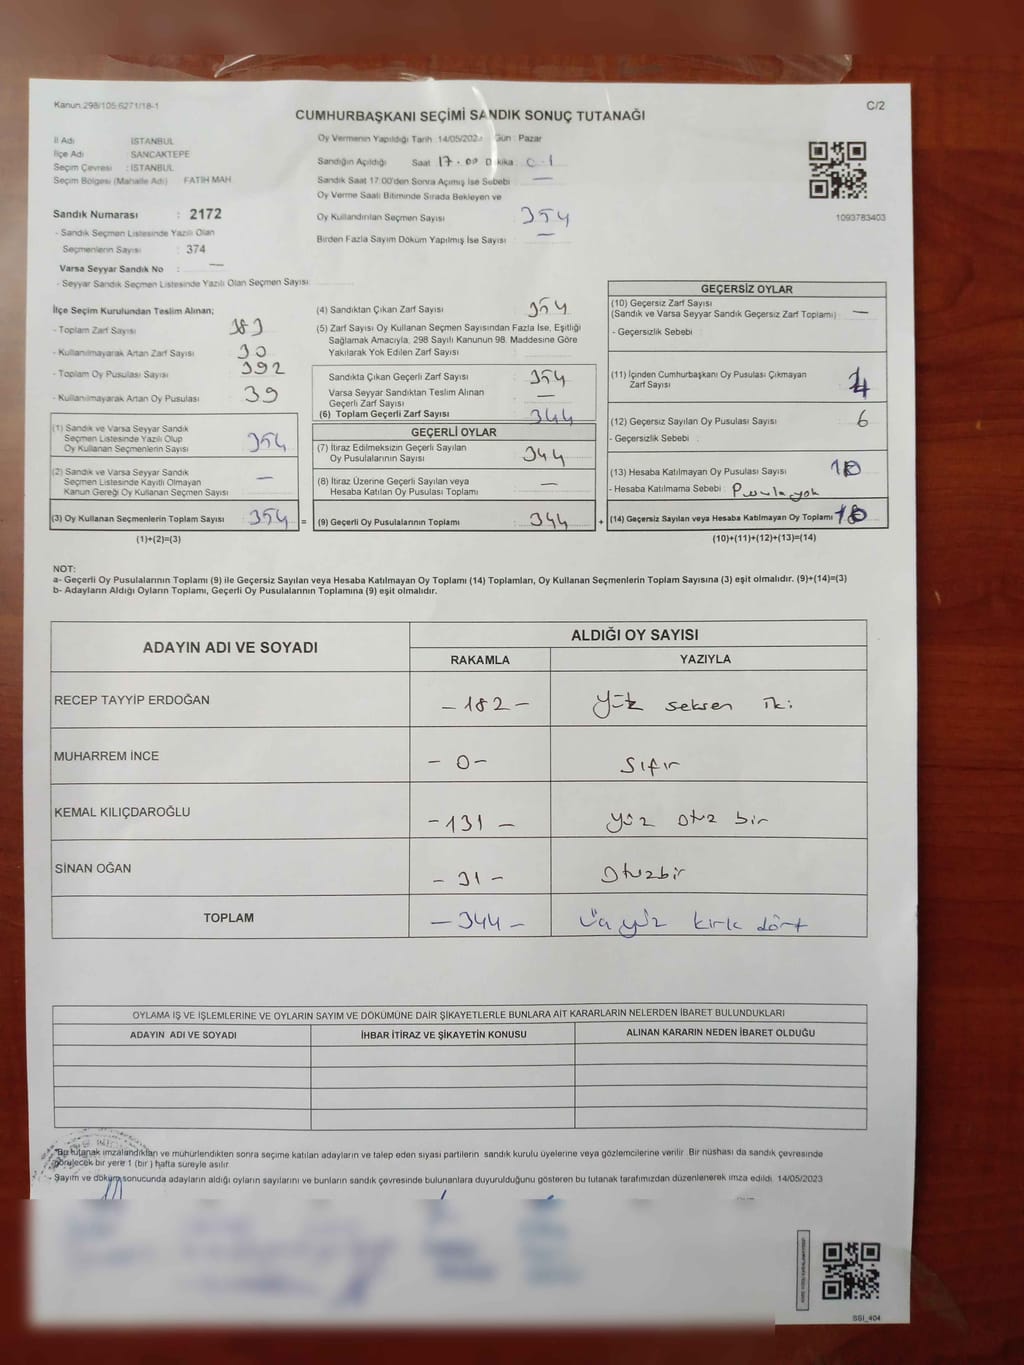 Kanun.298/105-6271/18-1
C/2
CUMHURBAŞKANI SEÇİMİ SANDIK SONUÇ TUTANAĞI
İl Adı İSTANBUL
İlçe Adı SANCAKTEPE
Seçim Çevresi : İSTANBUL
Seçim Bölgesi (Mahalle Adı) FATİH MAH.
Sandık Numarası : 2172
- Sandık Seçmen Listesinde Yazılı Olan
Seçmenlerin Sayısı : 374
Varsa Seyyar Sandık No : —
- Seyyar Sandık Seçmen Listesinde Yazılı Olan Seçmen Sayısı:
Oy Vermenin Yapıldığı Tarih :14/05/2023 Gün : Pazar
Sandığın Açıldığı Saat 17.00 Dakika
Sandık Saat 17:00'den Sonra Açımış İse Sebebi —
Oy Verme Saati Bitiminde Sırada Bekleyen ve
Oy Kullandırılan Seçmen Sayısı 354
Birden Fazla Sayım Döküm Yapılmış İse Sayısı —
1093783403
İlçe Seçim Kurulundan Teslim Alınan;
- Toplam Zarf Sayısı 383
- Kullanılmayarak Artan Zarf Sayısı 30
- Toplam Oy Pusulası Sayısı 392
- Kullanılmayarak Artan Oy Pusulası 39
(1) Sandık ve Varsa Seyyar Sandık
Seçmen Listesinde Yazılı Olup
Oy Kullanan Seçmenlerin Sayısı 354
(2) Sandık ve Varsa Seyyar Sandık
Seçmen Listesinde Kayıtlı Olmayan
Kanun Gereği Oy Kullanan Seçmen Sayısı —
(3) Oy Kullanan Seçmenlerin Toplam Sayısı 354 =
(1)+(2)=(3)
(4) Sandıktan Çıkan Zarf Sayısı 354
(5) Zarf Sayısı Oy Kullanan Seçmen Sayısından Fazla İse, Eşitliği
Sağlamak Amacıyla, 298 Sayılı Kanunun 98. Maddesine Göre
Yakılarak Yok Edilen Zarf Sayısı
Sandıkta Çıkan Geçerli Zarf Sayısı 354
Varsa Seyyar Sandıktan Teslim Alınan
Geçerli Zarf Sayısı —
(6) Toplam Geçerli Zarf Sayısı 344
GEÇERLİ OYLAR
(7) İtiraz Edilmeksizin Geçerli Sayılan
Oy Pusulalarının Sayısı 344
(8) İtiraz Üzerine Geçerli Sayılan veya
Hesaba Katılan Oy Pusulası Toplamı —
(9) Geçerli Oy Pusulalarının Toplamı 344 +
GEÇERSİZ OYLAR
(10) Geçersiz Zarf Sayısı
(Sandık ve Varsa Seyyar Sandık Geçersiz Zarf Toplamı) —
- Geçersizlik Sebebi
(11) İçinden Cumhurbaşkanı Oy Pusulası Çıkmayan
Zarf Sayısı 4
(12) Geçersiz Sayılan Oy Pusulası Sayısı 6
- Geçersizlik Sebebi
(13) Hesaba Katılmayan Oy Pusulası Sayısı 10
- Hesaba Katılmama Sebebi : Pusula yok
(14) Geçersiz Sayılan veya Hesaba Katılmayan Oy Toplamı 10
(10)+(11)+(12)+(13)=(14)
NOT:
a- Geçerli Oy Pusulalarının Toplamı (9) ile Geçersiz Sayılan veya Hesaba Katılmayan Oy Toplamı (14) Toplamları, Oy Kullanan Seçmenlerin Toplam Sayısına (3) eşit olmalıdır. (9)+(14)=(3)
b- Adayların Aldığı Oyların Toplamı, Geçerli Oy Pusulalarının Toplamına (9) eşit olmalıdır.
ADAYIN ADI VE SOYADI
ALDIĞI OY SAYISI
RAKAMLA YAZIYLA
RECEP TAYYİP ERDOĞAN -182- yüz seksen iki
MUHARREM İNCE -0- sıfır
KEMAL KILIÇDAROĞLU -131- yüz otuz bir
SİNAN OĞAN -31- otuzbir
TOPLAM -344- üçyüz kırk dört
OYLAMA İŞ VE İŞLEMLERİNE VE OYLARIN SAYIM VE DÖKÜMÜNE DAİR ŞİKAYETLERLE BUNLARA AİT KARARLARIN NELERDEN İBARET BULUNDUKLARI
ADAYIN ADI VE SOYADI İHBAR İTİRAZ VE ŞİKAYETİN KONUSU ALINAN KARARIN NEDEN İBARET OLDUĞU
*Bu tutanak imzalandıktan ve mühürlendikten sonra seçime katılan adayların ve talep eden siyasi partilerin sandık kurulu üyelerine veya gözlemcilerine verilir. Bir nüshası da sandık çevresinde
görülecek bir yere 1 (bir) hafta süreyle asılır.
- Sayım ve döküm sonucunda adayların aldığı oyların sayılarını ve bunların sandık çevresinde bulunanlara duyurulduğunu gösteren bu tutanak tarafımızdan düzenlenerek imza edildi. 14/05/2023
SSI_404